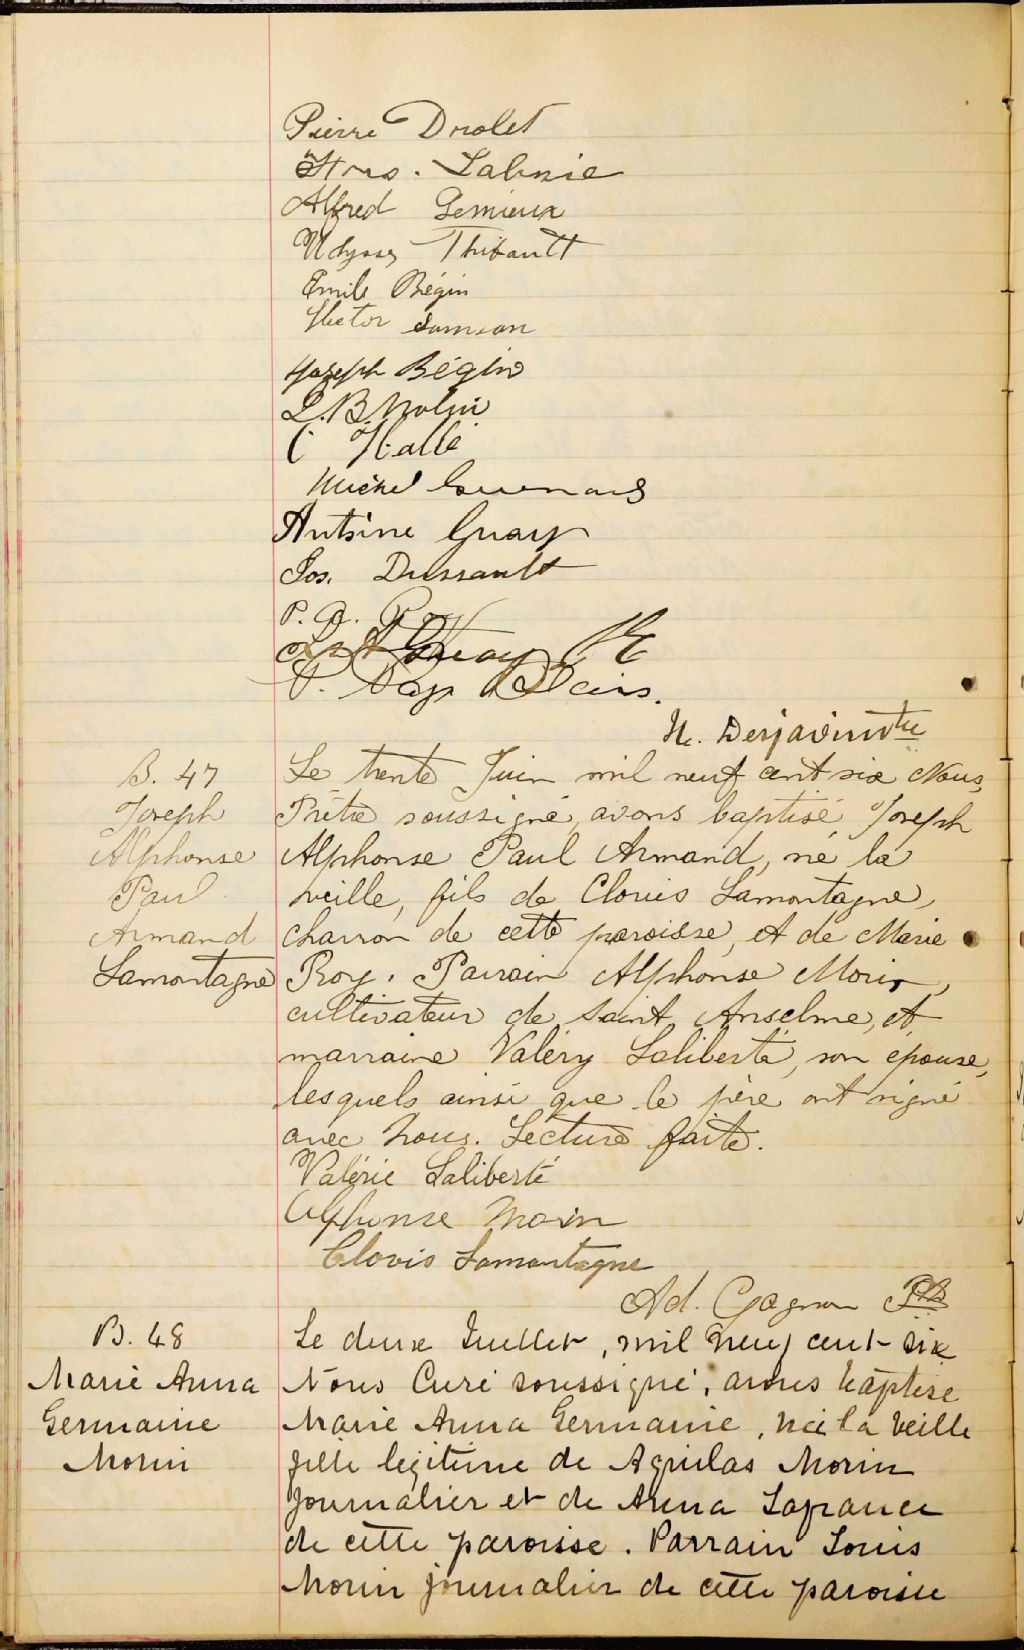 Pierre Drolet
Alfred Lemieux
Ulysse Thibault
Emile Bégin
Hector Samson
Joseph Bégin
L. B. Morin
C Hallé
Michel
Antoine Guay
Jos. Dussault
P. A. Roy
Guay
P.
H. Desjardins ptre
B. 47
Joseph
Alphonse
Paul
Armand
Lamontagne
Le trente Juin mil neuf cent six Nous,
Prêtre soussigné, avons baptisé Joseph
Alphonse Paul Armand, né la
veille, fils de Clovis Lamontagne,
charron de cette paroisse, et de Marie
Roy. Parrain Alphonse Morin,
cultivateur de Saint Anselme, et
marraine Valéry Laliberté, son épouse,
lesquels ainsi que le père ont signé
avec nous. Lecture faite.
Valérie Laliberté
Alphonse Morin
Clovis Lamontagne
Ad. Gagnon Ptre
B. 48
Marie Anna
Germaine
Morin
Le deux Juillet, mil neuf cent six
Nous Curé soussigné, avons baptisé
Marie Anna Germaine, née la veille
fille légitime de Aquilas Morin
journalier et de Anna Lafrance
de cette paroisse. Parrain Louis
Morin journalier de cette paroisse